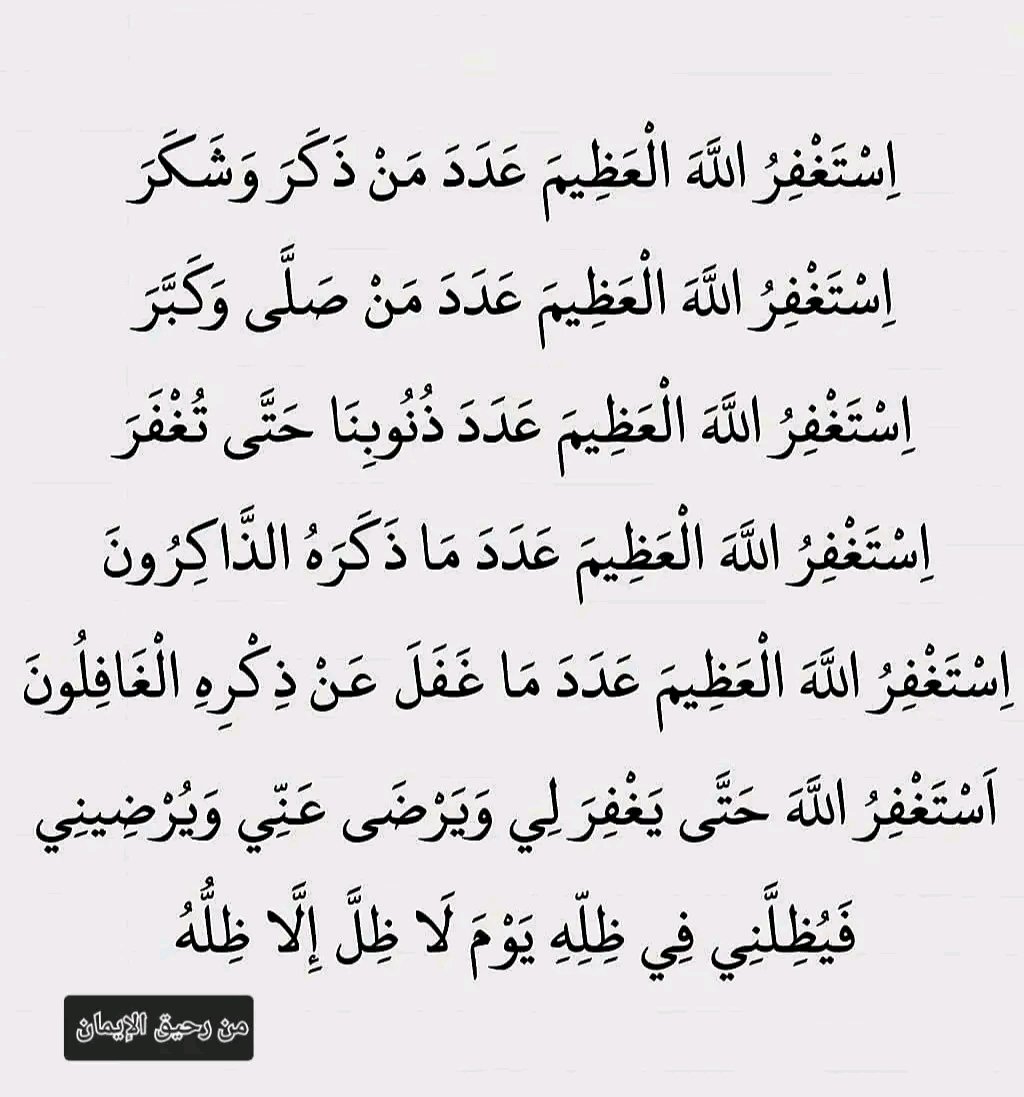 اِسْتَغْفِرُ اللَّهَ الْعَظِيمَ عَدَدَ مَنْ ذَكَرَ وَشَكَرَ
اِسْتَغْفِرُ اللَّهَ الْعَظِيمَ عَدَدَ مَنْ صَلَّى وَكَبَّرَ
اِسْتَغْفِرُ اللَّهَ الْعَظِيمَ عَدَدَ ذُنُوبِنَا حَتَّى تُغْفَرَ
اِسْتَغْفِرُ اللَّهَ الْعَظِيمَ عَدَدَ مَا ذَكَرَهُ الذَّاكِرُونَ
اِسْتَغْفِرُ اللَّهَ الْعَظِيمَ عَدَدَ مَا غَفَلَ عَنْ ذِكْرِهِ الْغَافِلُونَ
اَسْتَغْفِرُ اللَّهَ حَتَّى يَغْفِرَ لِي وَيَرْضَى عَنِّي وَيُرْضِينِي
فَيُظِلَّنِي فِي ظِلِّهِ يَوْمَ لَا ظِلَّ إِلَّا ظِلُّهُ
من رحيق الإيمان